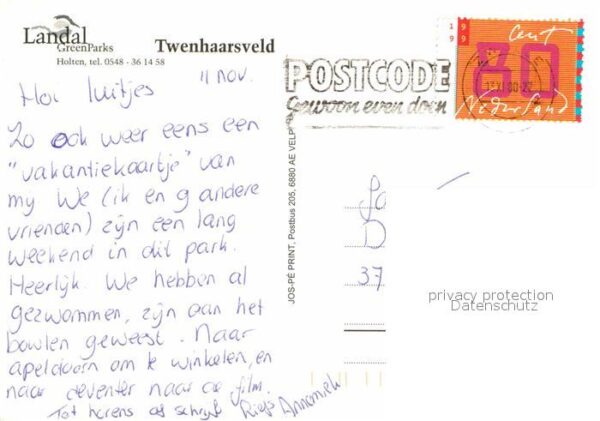 Landal
GreenParks
Twenhaarsveld
Holten, tel. 0548 - 36 14 58
11 nov.
Hoi luitjes
Zo ook weer eens een
"vakantiekaartje" van
my We (ik en 9 andere
vrienden) zijn een lang
weekend in dit park.
Heerlijk. We hebben al
gezwommen, zijn aan het
bowlen geweest. Naar
apeldoorn om te winkelen, en
naar deventer naar de film.
Tot horens of schrijf
Annemiek
JOS-PÉ PRINT, Postbus 205, 6880 AE VELP
POSTCODE
Gewoon even doen
1999
cent
80
Nederland
D
37
privacy protection
Datenschutz